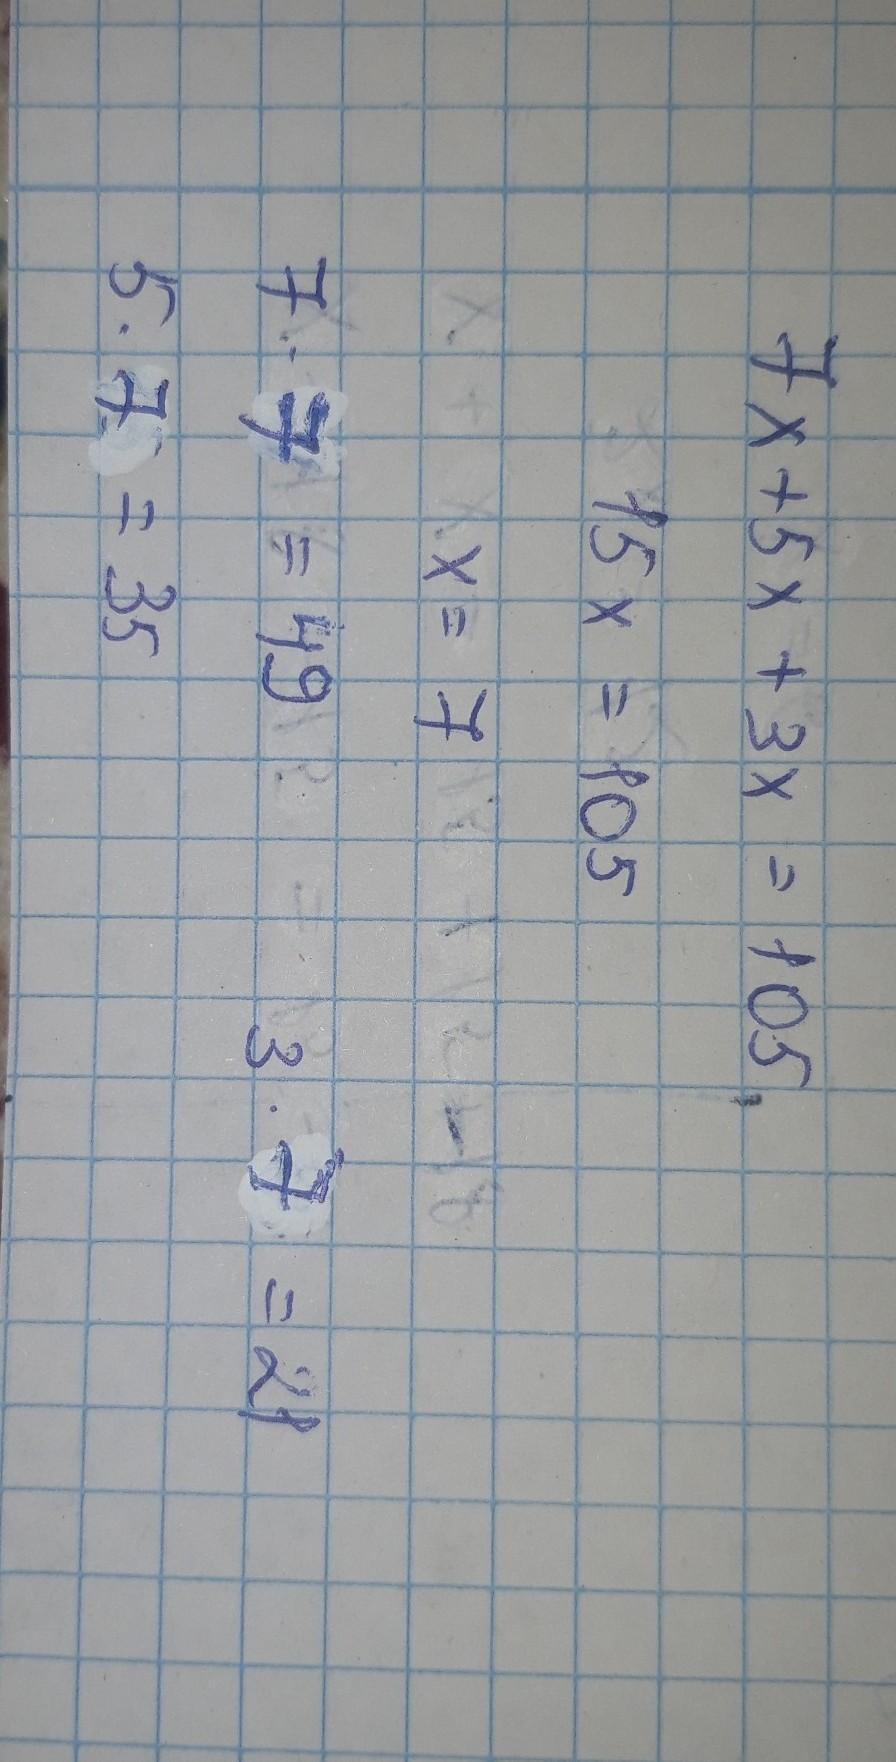 7x + 5x + 3x = 105
15x = 105
x = 7
7 · 7 = 49 3 · 7 = 21
5 · 7 = 35